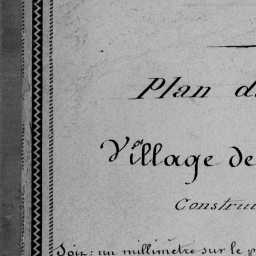 Plan d
Village de
Constru
Soit : un millimètre sur le p